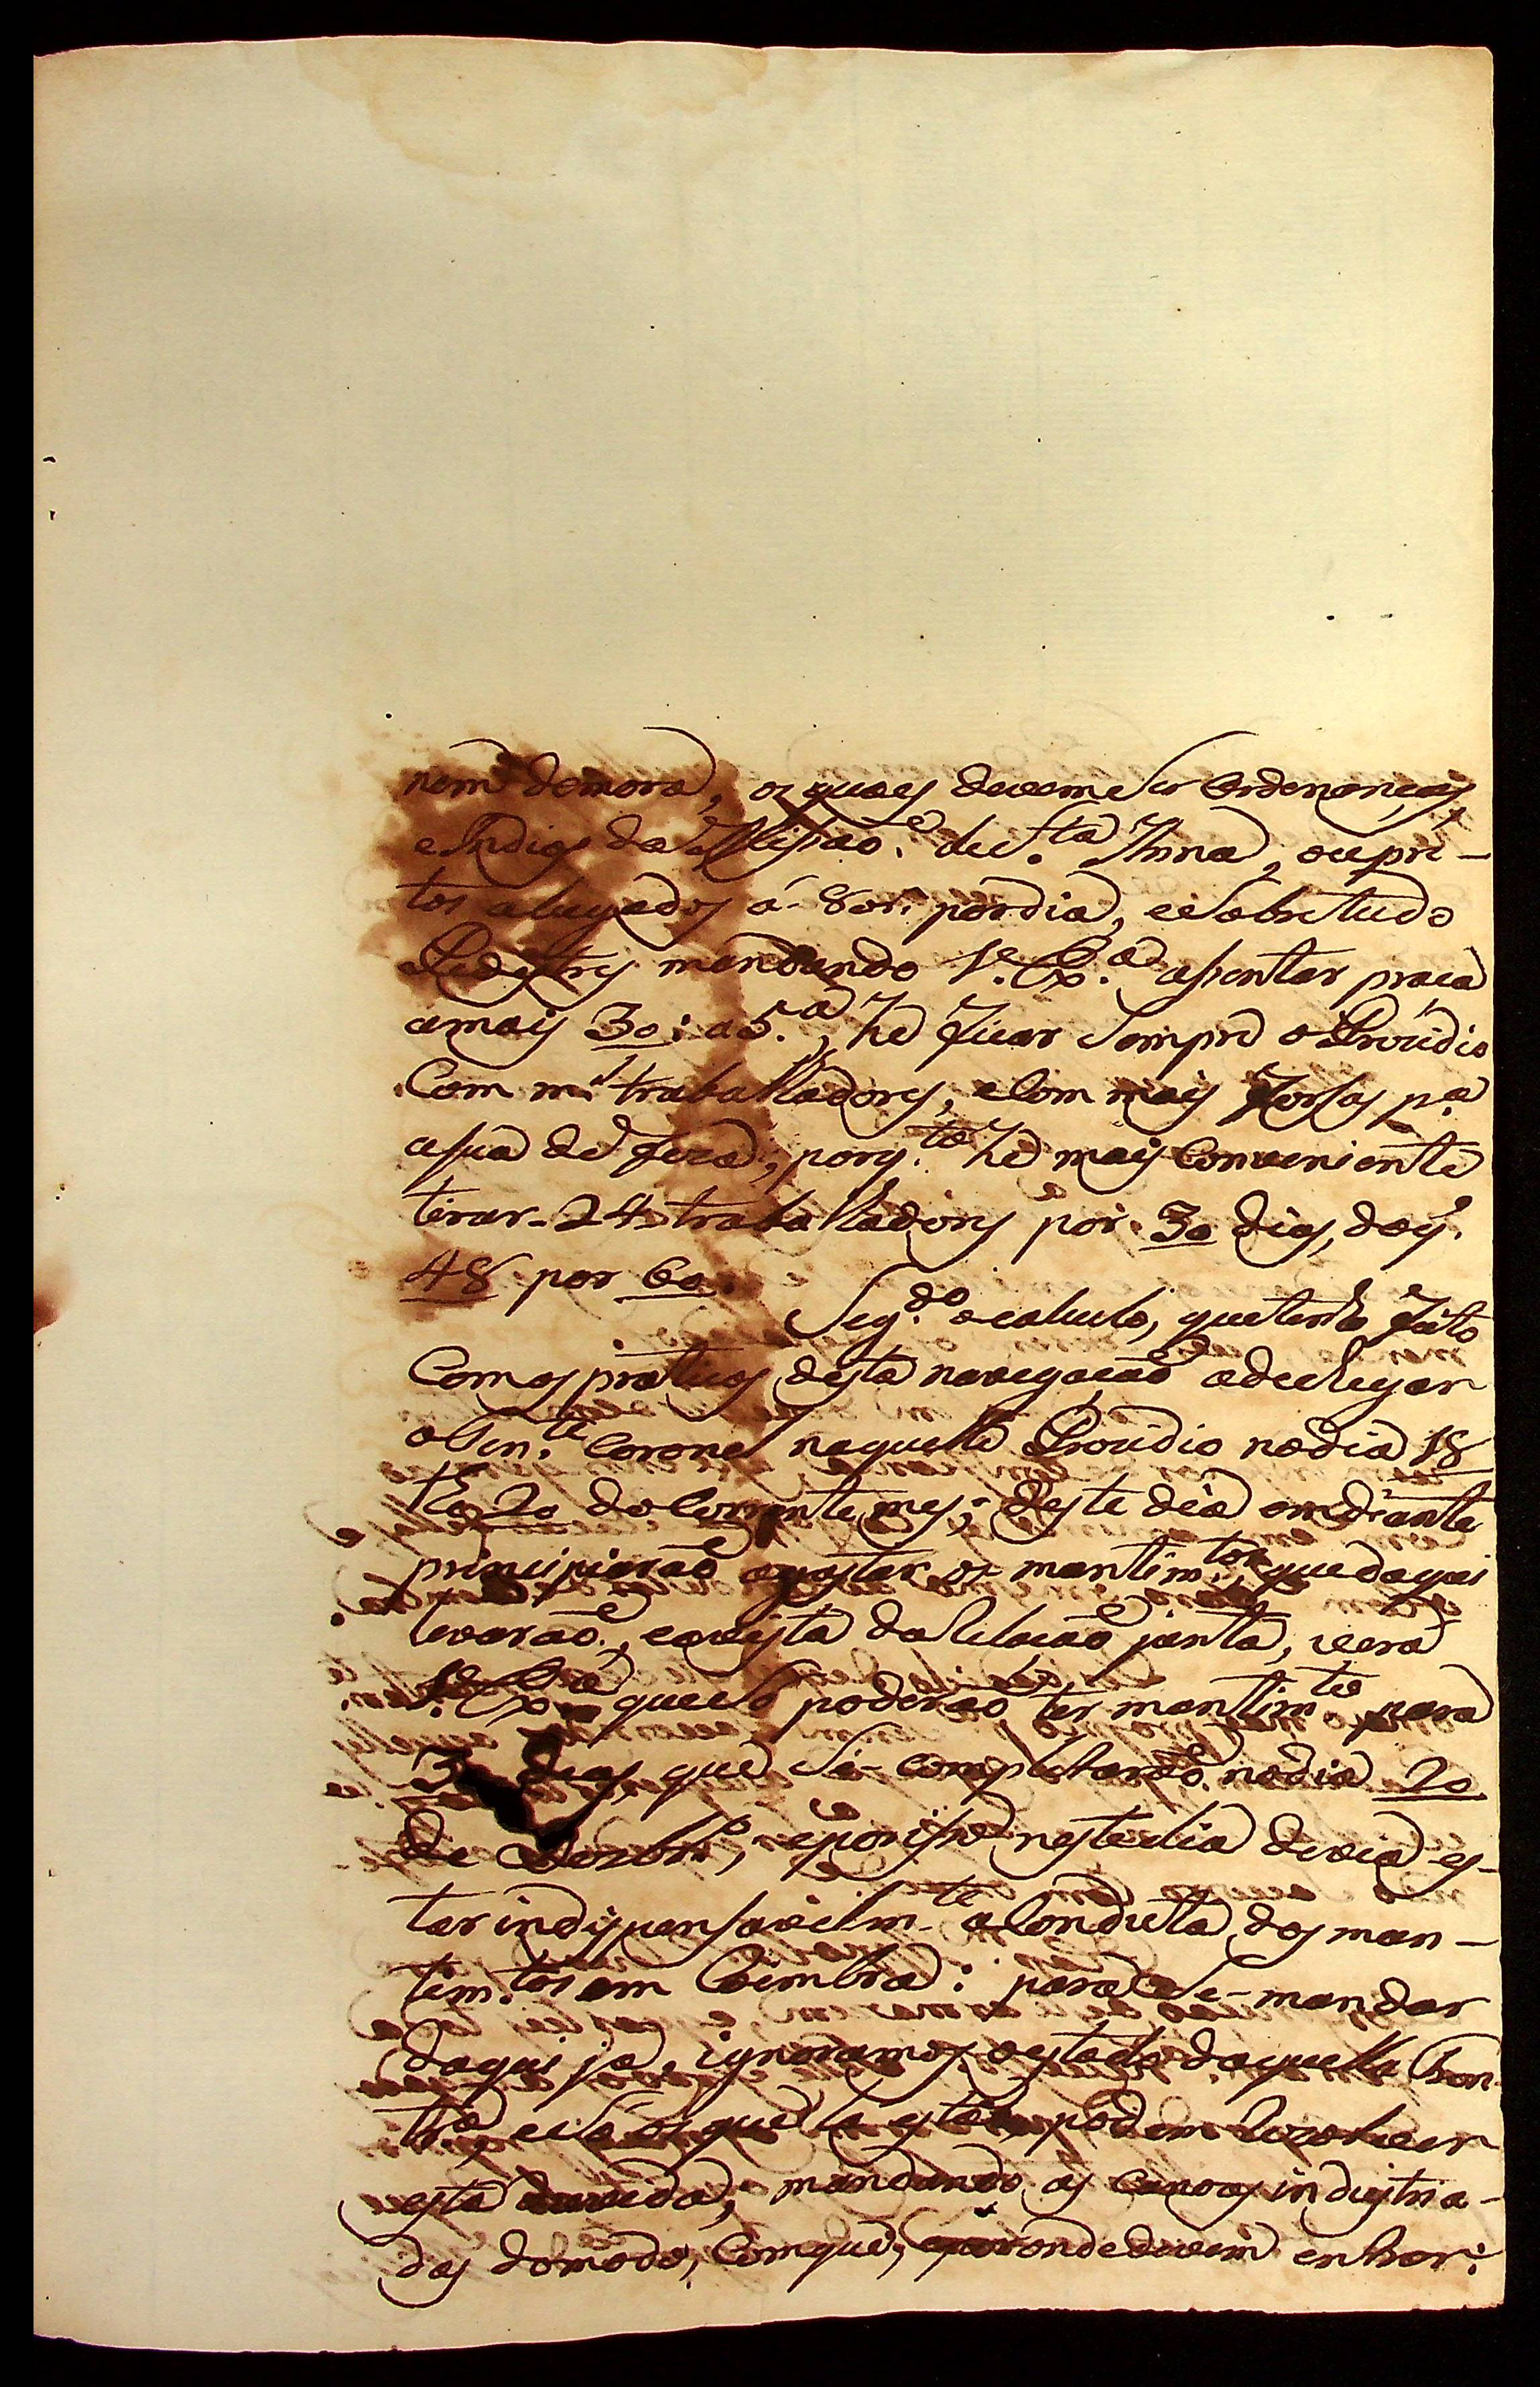 nem demora, os quaes devem ser Ordenanças,
e Indios da Missaõ. de S.ta Anna, ou pre-
tos alugados á 80r. por dia, e sobre tudo
Pedestres mandando V. Ex.a assentar praca
a mais 30: a 5.a, he ficar sempre o Prezidio
Com m.s trabalhadores, e Com mais forsas p.a
a sua defeza, porq.to he mais Conveniente
tirar-24 trabalhadores por 30 dias, do q.
48 por 60.
Seg.do o calculo, que tenho feito
Com os praticos desta navegaçaõ ade chegar
o Ten.te Coronel naquelle Prezidio no dia 18
the 20 do Corrente mes; deste dia em diante
principiaraõ a gastar os mantim.tos, que daqui
levaraõ, e a vista da Relacaõ junta, verá
V. Ex.a que só poderaõ ter mantim.to para
3 dias, que se-completaraõ no dia 20
de Dezbr.o, e por isso neste dia devia es-
tar indispensavelm.te a Conducta dos man-
tim.tos em Coimbra: para se-mandar
daqui já, ignoramos o estado daquella Fron-
tra, e só os que lá estaõ, podem rezolver
esta duvida, mandando as canoas industria-
das do modo, Com que, e por onde devem entrar: